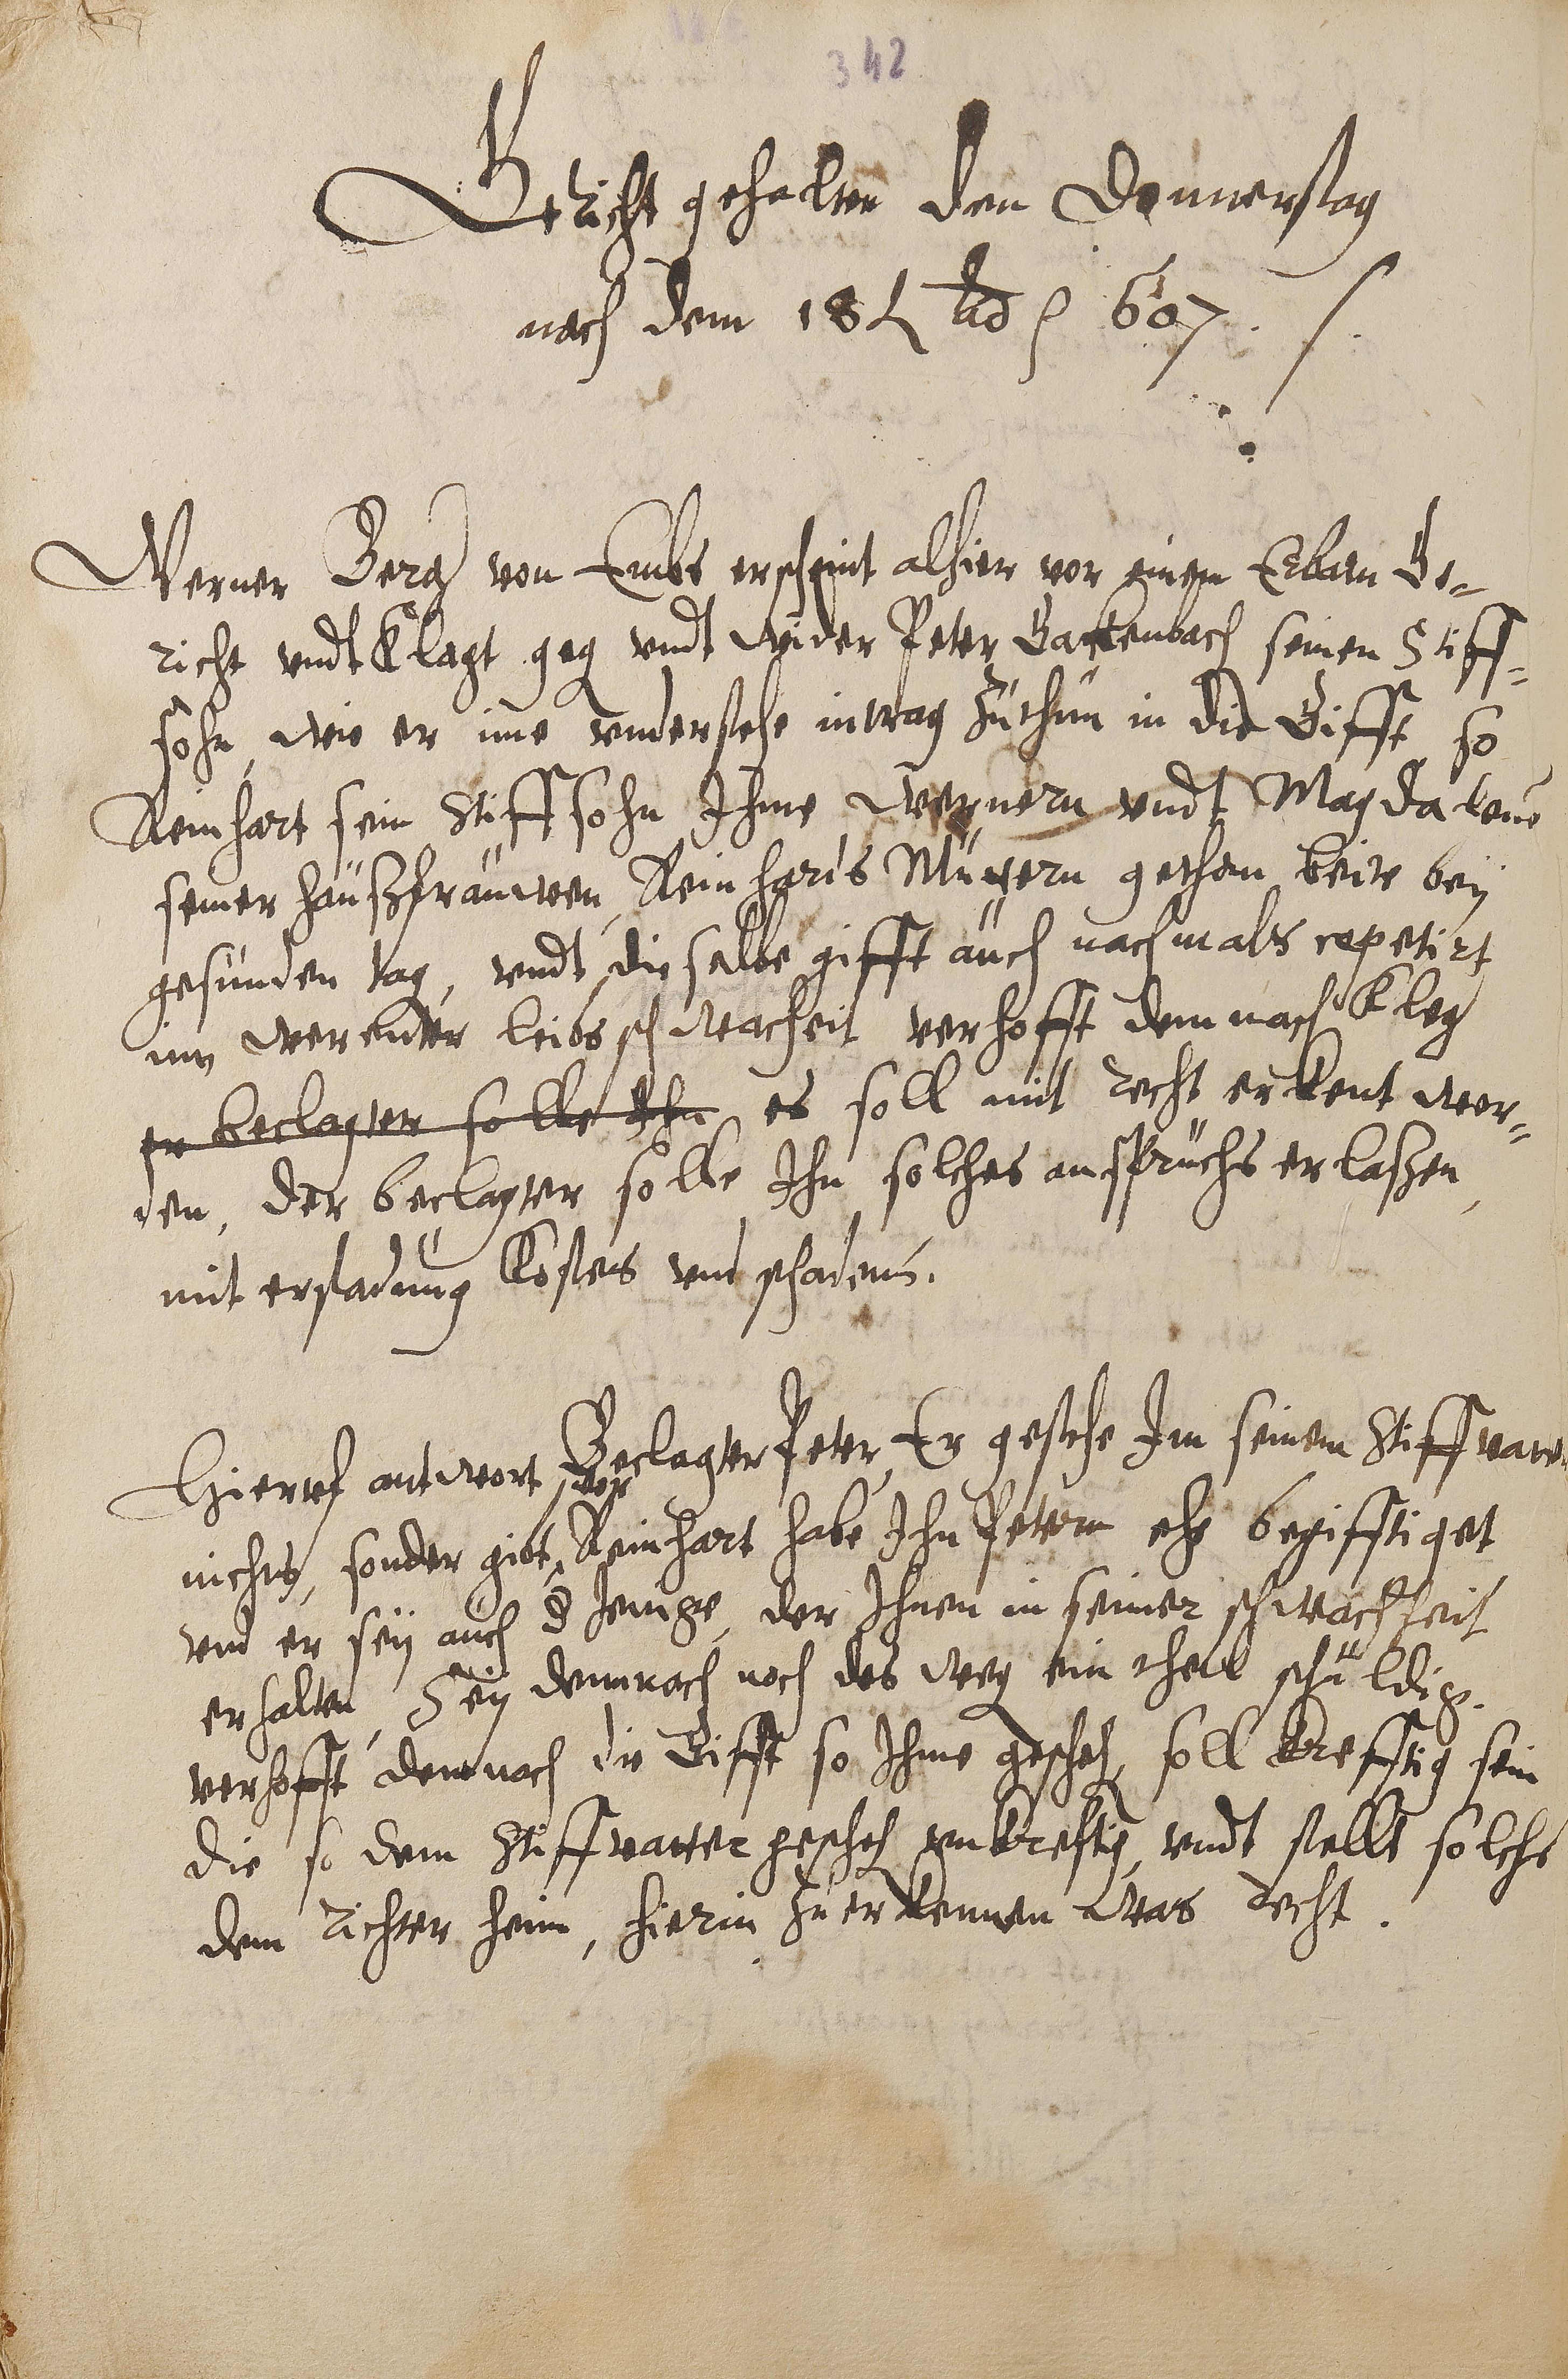 342
Gericht gehalten den Donnerstag
nach dem 18t 607.
Werner Berg von Embs erscheint alhier vor einem Erbarn Ge-
richt vndt Klagt geg vndt wider Peter Backenbach seinen Stiff-
sohn, wie er ime vnderstehe intrag zuthun in die Gifft so
Reinhart sein Stiffsohn Ihme Wernern vndt Magdalene
seiner haußfrauwen, Reinharts Muttern gethan beide beÿ
gesunden tag, vndt dieselbe gifft auch nachmals repetirt
inn werender leibsschwacheit verhofft demnach Kleg
er beclagter solle Ihn es soll mit recht erkent wer-
den, der beclagter solle Ihn solches anspruchs erlaßen,
mit erstadung Kostens vnd schadens.
Hieruf antwort Beclagter Peter, Er gestehe Im seinem Stiffvatter
nichts, sonder gibt vor, Reinhart habe Ihn Petern ehe begifftiget
vnd er seÿ auch d Jenige, der Ihnen in seiner schwachheit
erhalten, Seÿ demnach noch des weg ein theil schuldig.
verhofft demnach die Gifft so Ihme gescheh, soll krefftig sein
die so dem Stiffvatter gescheh vnkreftig, vndt stellt solchs
dem Richter heim, hierin zu erkennen was recht.